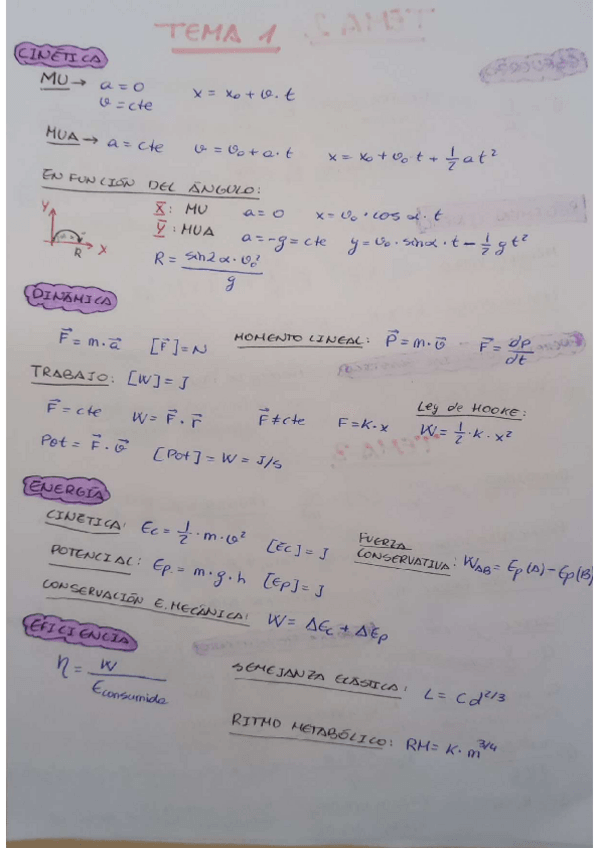 TEMA 1
CINÉTICA
MU → a = 0
v = cte
x = x₀ + v · t
MUA → a = cte v = v₀ + a · t x = x₀ + v₀ · t + 1/2 a t²
EN FUNCIÓN DEL ÁNGULO:
Y
X
R
X: MU a = 0 x = v₀ · cos α · t
Y: MUA a = -g = cte y = v₀ · sin α · t - 1/2 g t²
R = sin 2α · v₀² / g
DINÁMICA
F⃗ = m · a⃗ [F⃗] = N MOMENTO LINEAL: P⃗ = m · v⃗ F⃗ = dp/dt
TRABAJO: [W] = J
F⃗ = cte W = F⃗ · r⃗ F⃗ ≠ cte F = K · x Ley de HOOKE: W = 1/2 · K · x²
Pot = F⃗ · v⃗ [Pot] = W = J/s
ENERGÍA
CINÉTICA: Ec = 1/2 · m · v² [Ec] = J
POTENCIAL: Ep = m · g · h [Ep] = J
FUERZA CONSERVATIVA: W_AB = Ep(A) - Ep(B)
CONSERVACIÓN E. MECÁNICA: W = ΔEc + ΔEp
EFICIENCIA
η = W / Econsumida
SEMEJANZA ELÁSTICA: L = C d^2/3
RITMO METABÓLICO: RM = K · m^3/4